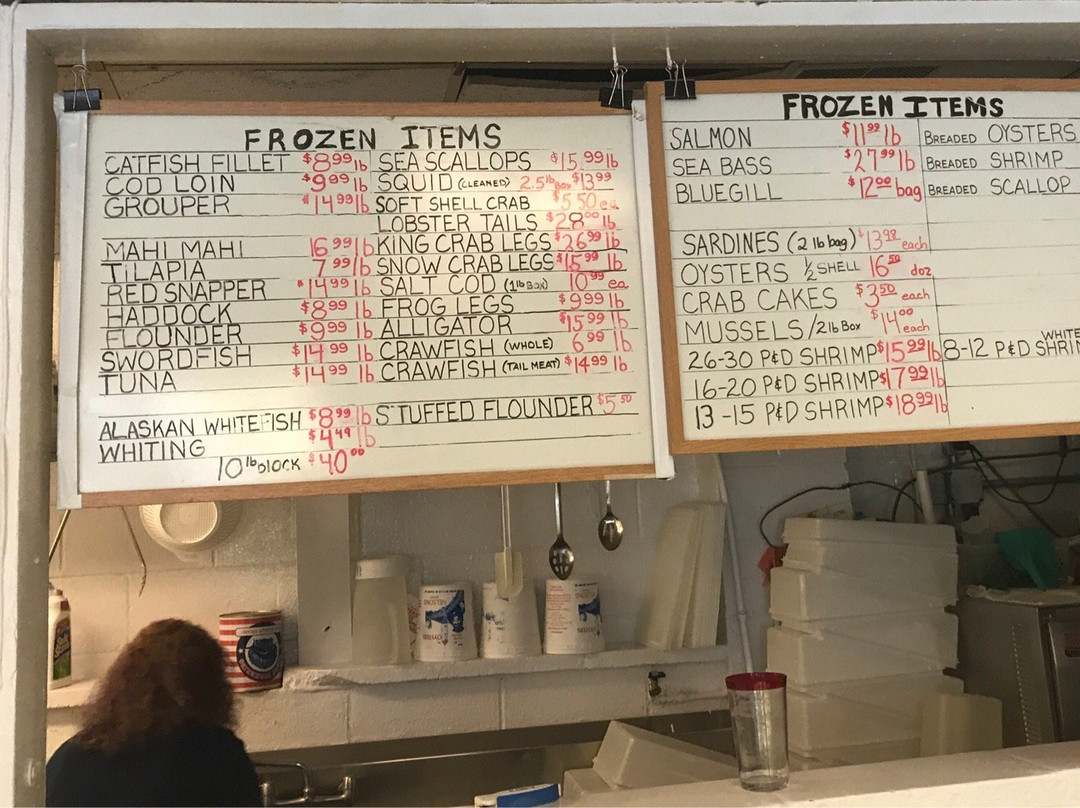 FROZEN ITEMS
CATFISH FILLET $8.99 lb
COD LOIN $9.99 lb
GROUPER $14.99 lb
MAHI MAHI 16.99 lb
TILAPIA 7.99 lb
RED SNAPPER $14.99 lb
HADDOCK $8.99 lb
FLOUNDER $9.99 lb
SWORDFISH $14.99 lb
TUNA $14.99 lb
ALASKAN WHITEFISH $8.99 lb
WHITING $4.49 lb
10 lb BLOCK $40.00
SEA SCALLOPS $15.99 lb
SQUID (CLEANED) 2.5 lb BOX $13.99
SOFT SHELL CRAB $5.50 ea
LOBSTER TAILS $28.00 lb
KING CRAB LEGS $26.99 lb
SNOW CRAB LEGS $15.99 lb
SALT COD (1 lb BOX) 10.99 ea
FROG LEGS $9.99 lb
ALLIGATOR $15.99 lb
CRAWFISH (WHOLE) 6.99 lb
CRAWFISH (TAIL MEAT) $14.99 lb
STUFFED FLOUNDER $5.50
FROZEN ITEMS
SALMON $11.99 lb
SEA BASS $27.99 lb
BLUEGILL $12.00 bag
SARDINES (2 lb bag) $13.98 each
OYSTERS ½ SHELL 16.50 doz
CRAB CAKES $3.50 each
MUSSELS/2 lb Box $14.00 each
26-30 P&D SHRIMP $15.99 lb
16-20 P&D SHRIMP $17.99 lb
13-15 P&D SHRIMP $18.99 lb
BREADED OYSTERS
BREADED SHRIMP
BREADED SCALLOP
WHITE
8-12 P&D SHRIM